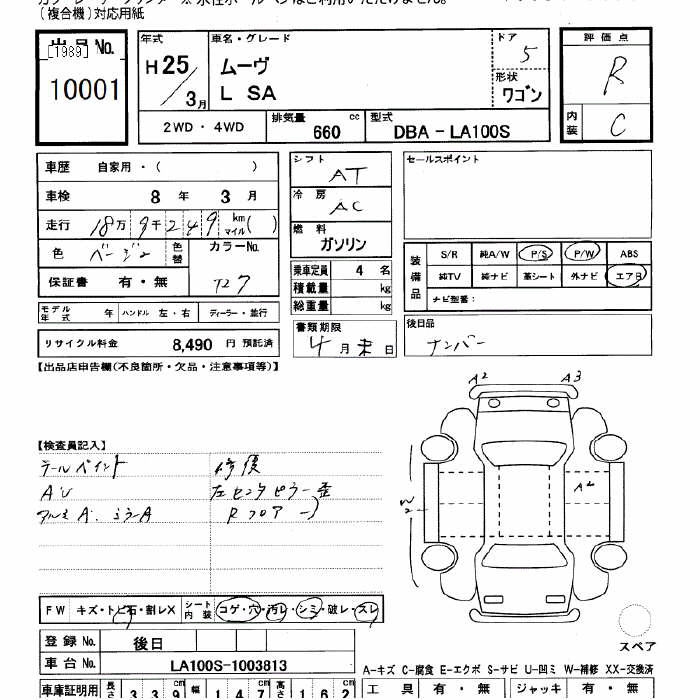 (複合機)対応用紙
出品 No.
[1989]
10001
年式
H 25 / 3 月
車名・グレード
ムーヴ
L SA
ドア
5
形状
ワゴン
2WD ・ 4WD
排気量 cc
660
型式
DBA - LA100S
評価点
R
内装
C
車歴 自家用・( )
車検 8 年 3 月
走行 18万 9千 2 4 9 km マイル( )
色 ベージュ 色替
カラーNo.
T27
保証書 有・無
シフト
AT
冷房
AC
燃料
ガソリン
乗車定員 4 名
積載量 kg
総重量 kg
セールスポイント
装備品
S/R 純A/W P/S P/W ABS
純TV 純ナビ 革シート 外ナビ エアB
ナビ型番:
モデル年式 年 ハンドル 左・右 ディーラー・並行
リサイクル料金 8,490 円 預託済
書類期限
4 月 末 日
後日品
ナンバー
【出品店申告欄(不良箇所・欠品・注意事項等)】
A2 A3
【検査員記入】
テールペイント 修復
AU 左センタピラー歪
アルミA・ミラーA Rフロアー
W2
A2
FW キズ・トビ石・割レX シート内装 コゲ・穴・汚レ・シミ・破レ・スレ
登録 No. 後日
車台 No. LA100S-1003813
スペア
A-キズ C-腐食 E-エクボ S-サビ U-凹ミ W-補修 XX-交換済
車庫証明用 長さ 3 3 9 cm 幅 1 4 7 cm 高さ 1 6 2 cm
工具 有・無 ジャッキ 有・無